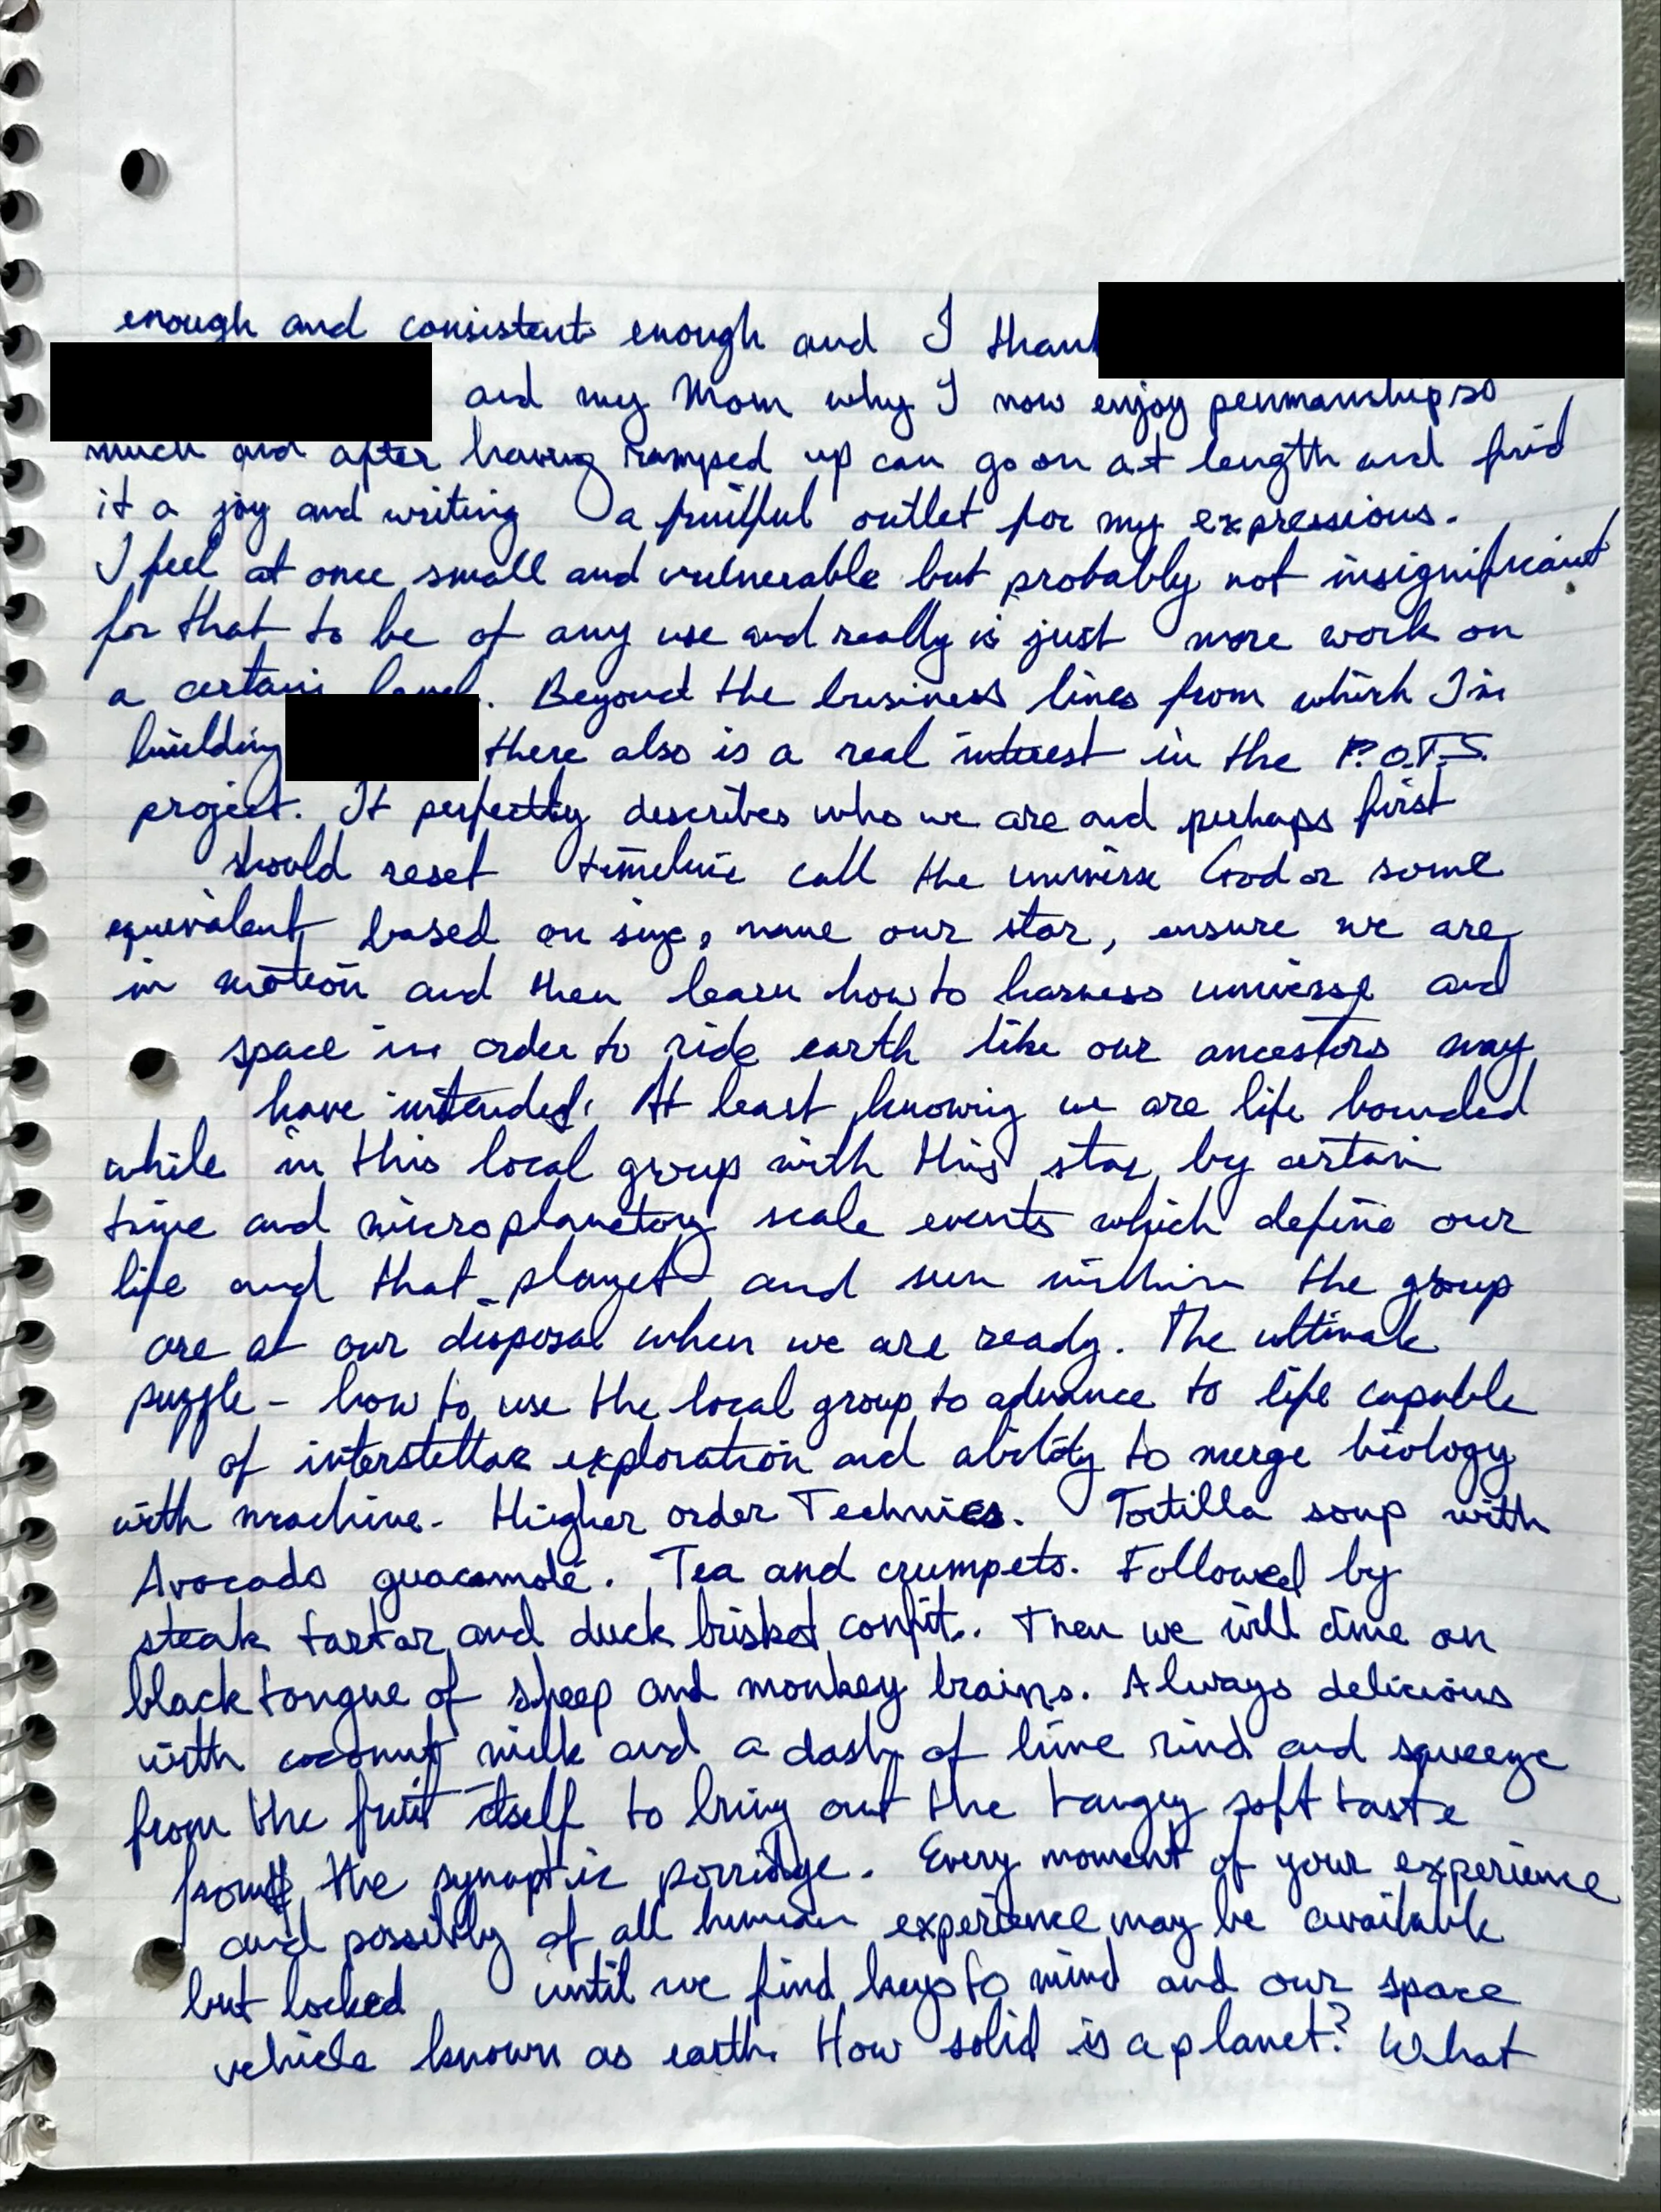 enough and consistent enough and I thank
and my Mom why I now enjoy penmanship so
much and after having ramped up can go on at length and find
it a joy and writing a fruitful outlet for my expressions.
I feel at once small and vulnerable but probably not insignificant
for that to be of any use and really is just more work on
a certain level. Beyond the business lines from which I'm
building there also is a real interest in the P.O.T.S.
project. It perfectly describes who we are and perhaps first
should reset timeline call the universe God or some
equivalent based on size, name our star, ensure we are
in motion and then learn how to harness universe and
space in order to ride earth like our ancestors may
have intended. At least knowing we are life bounded
while in this local group with this star by certain
time and microplanetary scale events which define our
life and that planet and sun within the group
are at our disposal when we are ready. The ultimate
puzzle - how to use the local group to advance to life capable
of interstellar exploration and ability to merge biology
with machine. Higher order Technics. Tortilla soup with
Avocado guacamole. Tea and crumpets. Followed by
steak tartar and duck brisket confit.. Then we will dine on
black tongue of sheep and monkey brains. Always delicious
with coconut milk and a dash of lime rind and squeeze
from the fruit itself to bring out the tangey soft taste
from the synaptic porridge. Every moment of your experience
and possibly of all human experience may be available
but locked until we find keys to mind and our space
vehicle known as earth. How solid is a planet? What